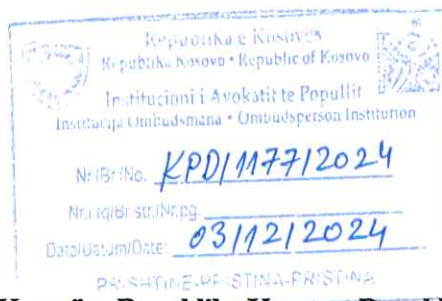 Republika e Kosovës
Republika Kosovo • Republic of Kosovo
Institucioni i Avokatit te Popullit
Institucija Ombudsmana • Ombudsperson Institution
Nr/Br/No. KPD/1177/2024
Nr.i fq/Br str./Nr.pg.
Data/Datum/Date: 03/12/2024
PRISHTINË-PRIŠTINA-PRISTINA